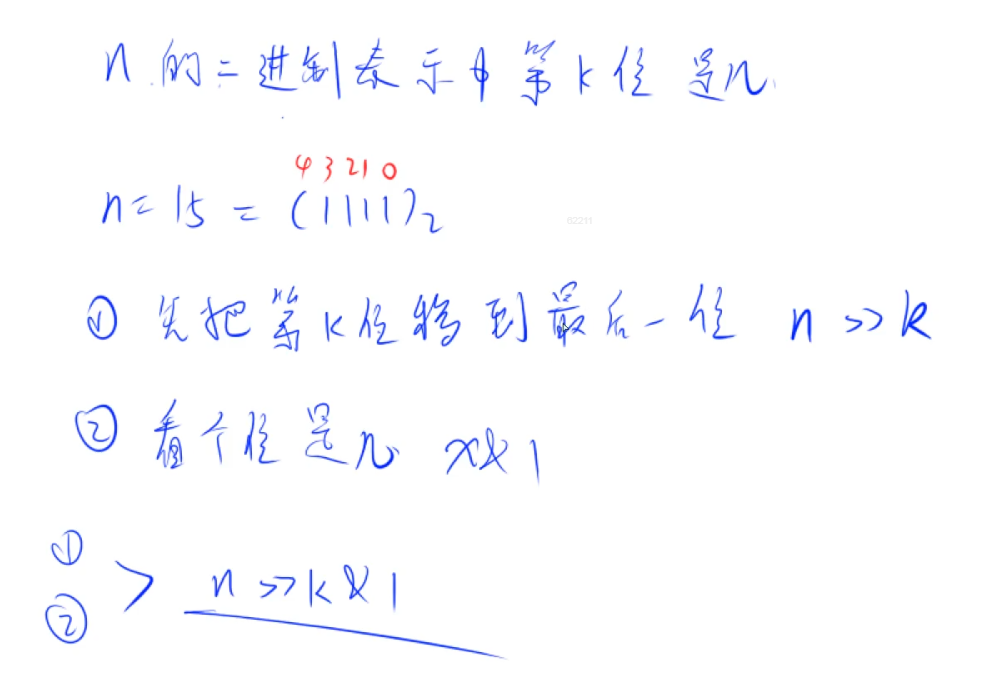 n的二进制表示中第k位是几
4 3 2 1 0
n = 15 = (1111)₂
① 先把第k位移到最后一位 n >> k
② 看个位是几 x&1
①
② > n >> k & 1
02211